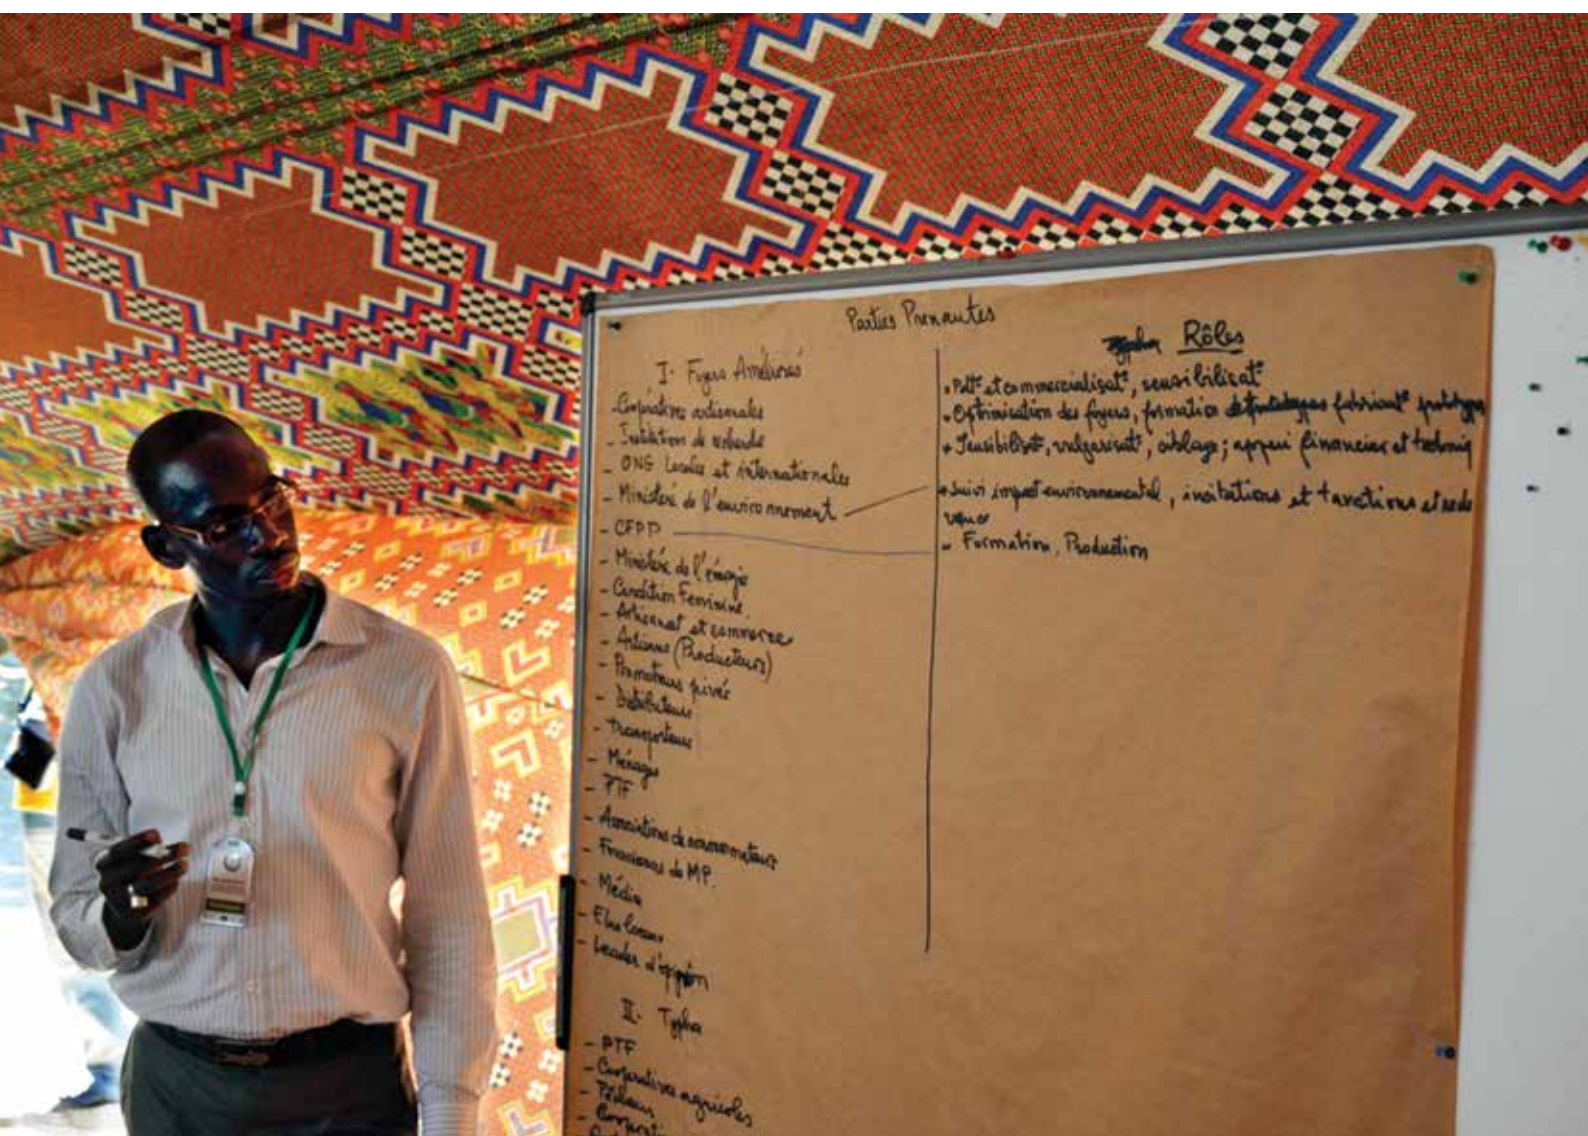 Parties Prenantes
I. Foyers Améliorés
- Coopératives artisanales
- Institution de recherche
- ONG Locales et internationales
- Ministère de l'environnement
- CFPP
- Ministère de l'énergie
- Condition Feminine
- Artisanat et commerce
- Artisans (Producteurs)
- Promoteurs privés
- Distributeurs
- Transporteurs
- Ménages
- PTF
- Associations de consommateurs
- Fournisseurs de MP.
- Média
- Elus locaux
- Leader d'opinion
II. Typha
- PTF
- Coopératives agricoles
- Pêcheurs
Typha Rôles
• Pdt° et commercialisat°, sensibilisat°
• Optimisation des foyers, formation fabricat° prototypes
• Sensibilisat°, vulgarisat°, ciblage; appui financier et techniq
• Suivi impact environnemental, incitations et
- Formation, Production